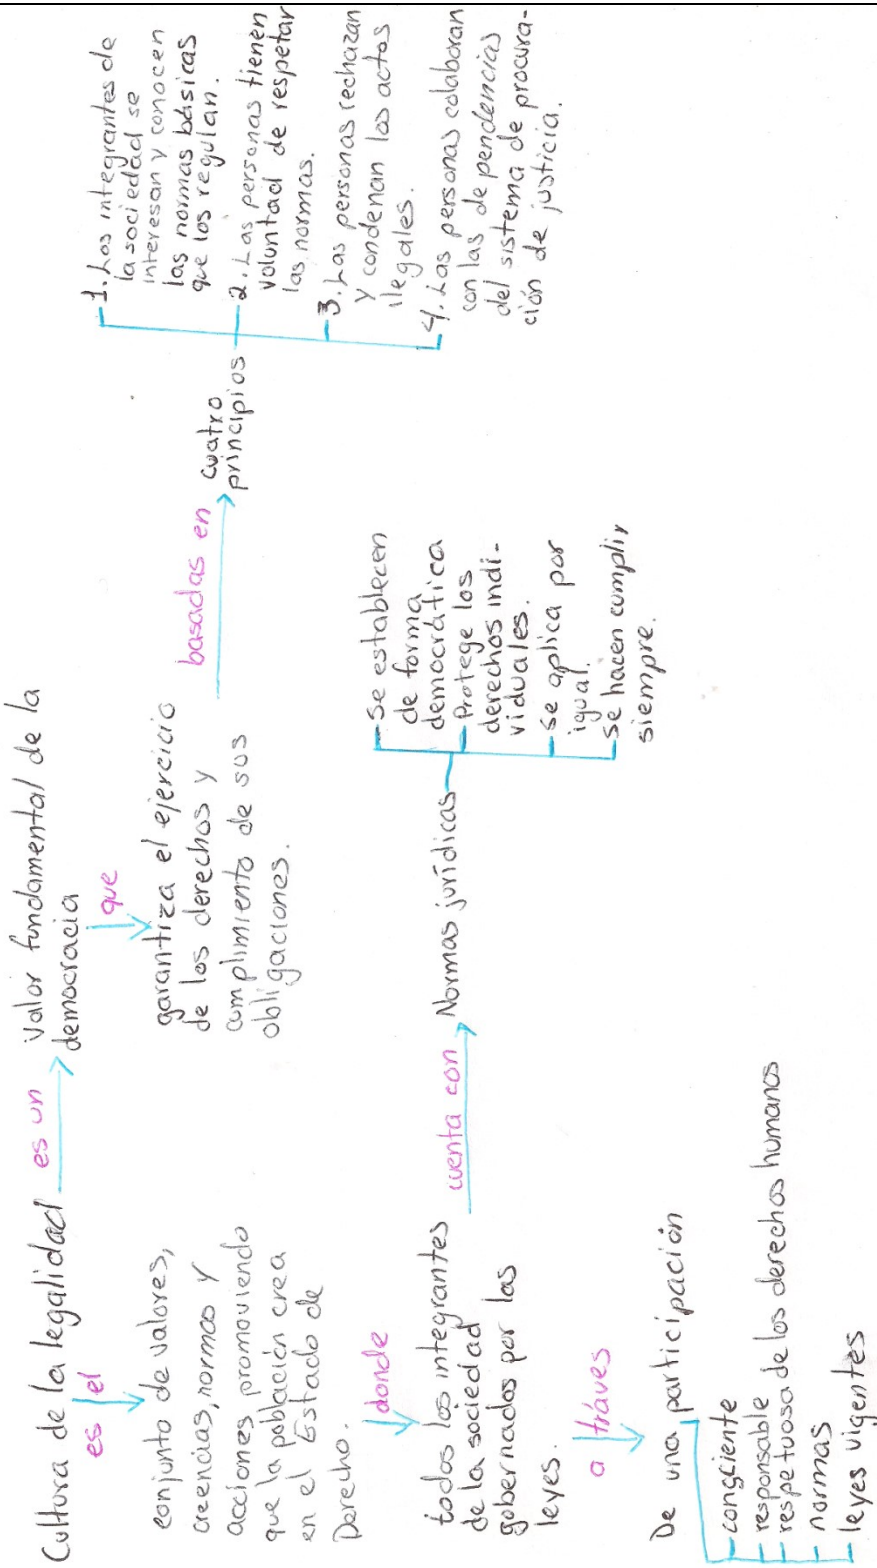 Cultura de la legalidad
es un
Valor fundamental de la
democracia
que
garantiza el ejercicio
de los derechos y
cumplimiento de sus
obligaciones.
basadas en
cuatro
principios
1. Los integrantes de
la sociedad se
interesan y conocen
las normas básicas
que los regulan.
2. Las personas tienen
voluntad de respetar
las normas.
3. Las personas rechazan
y condenan los actos
ilegales.
4. Las personas colaboran
con las dependencias
del sistema de procura-
ción de justicia.
es el
conjunto de valores,
creencias, normas y
acciones promoviendo
que la población crea
en el Estado de
Derecho.
donde
todos los integrantes
de la sociedad
gobernados por las
leyes.
cuenta con
Normas jurídicas
Se establecen
de forma
democrática
Protege los
derechos indi-
viduales.
se aplica por
igual.
se hacen cumplir
siempre.
a tráves
De una participación
consciente
responsable
respetuosa de los derechos humanos
normas
leyes vigentes